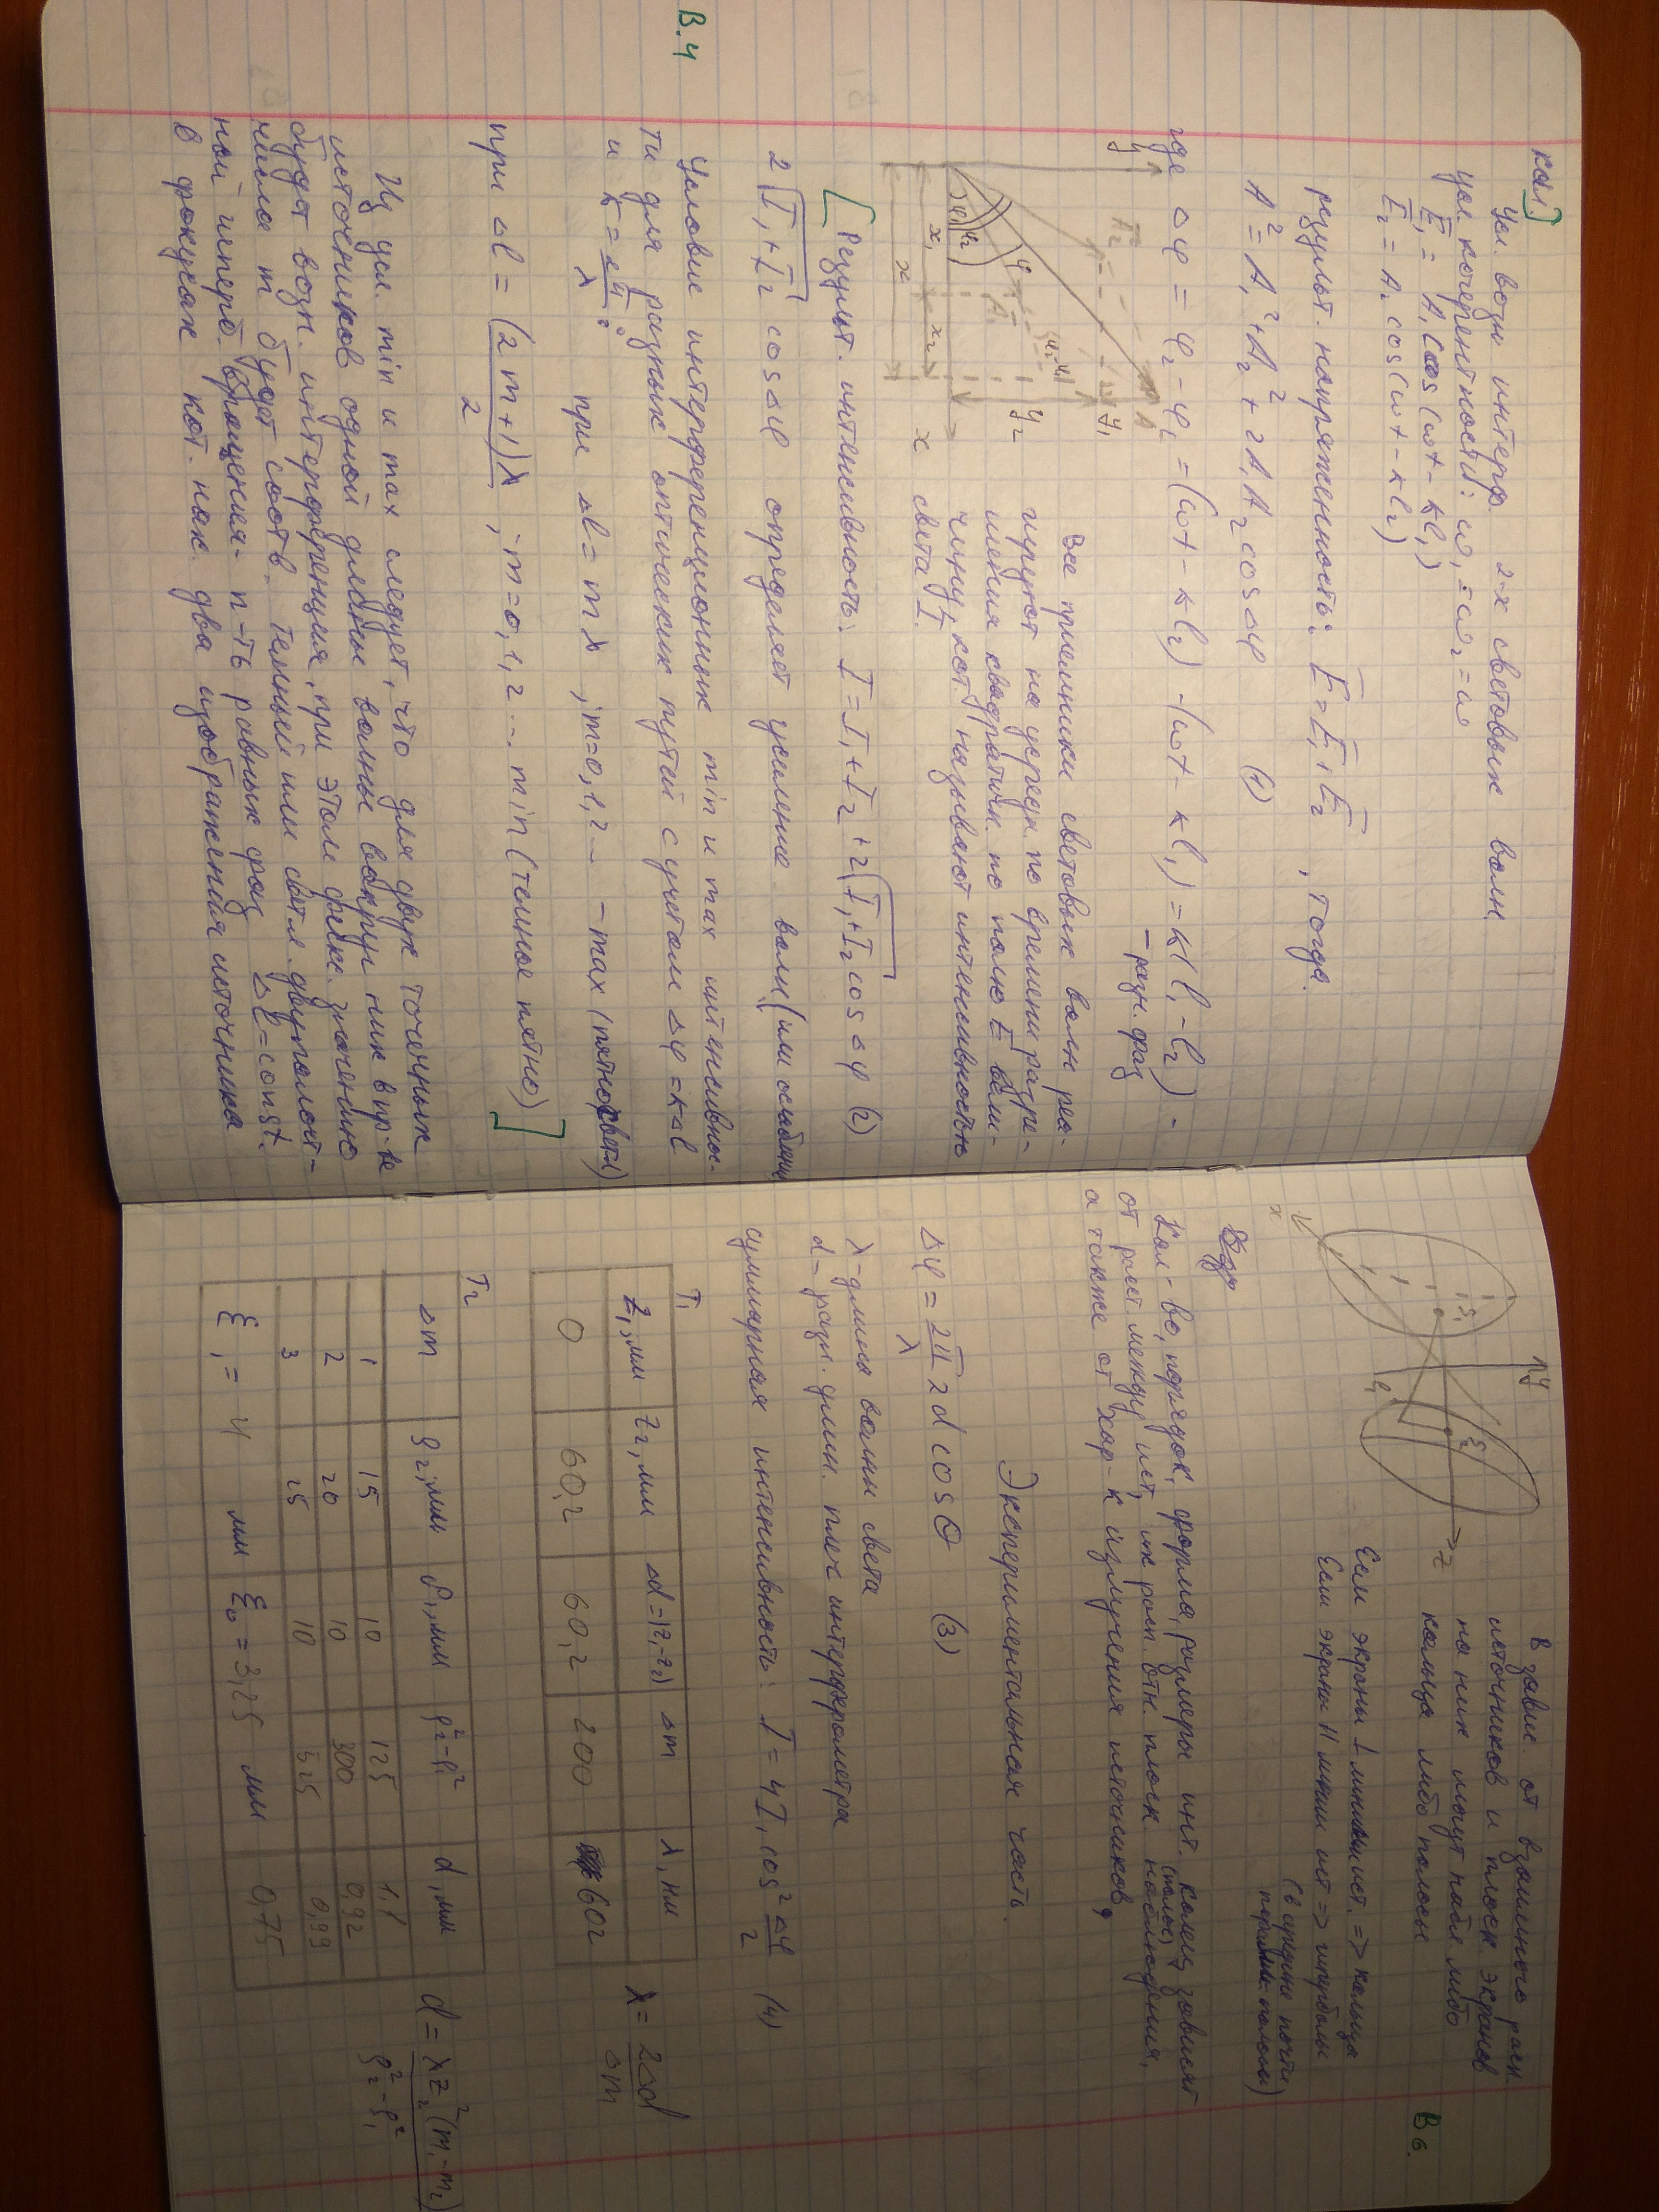 кал.]
Усл. возн интерф. 2-х световых волн
усл. когерентности: ω₁ = ω₂ = ω
E̅₁ = A₁ cos(ωt - kl₁)
E̅₂ = A₂ cos(ωt - kl₂)
результ. напряженность: E̅ = E̅₁ + E̅₂ , тогда.
A² = A₁² + A₂² + 2A₁A₂ cosΔφ (1)
где Δφ = φ₂ - φ₁ = (ωt - kl₂) - (ωt - kl₁) = k(l₁ - l₂) -
- разн. фаз
y
A̅₂
A
y₁
φ₂-φ₁
φ
A₁
y₂
φ₁
φ₂
x₁
x₂
x
x
Все приемники световых волн реа-
гируют на усредн. по времени разре-
шения квадратичн. по полю E̅ вели-
чину, кот. называют интенсивностью
света I.
[Результ. интенсивность: I = I₁ + I₂ + 2√(I₁+I₂) cosΔφ (2)
2√(I₁+I₂) cosΔφ определяет усиление волн (или ослабление
В.4
Условие интерференционных min и max интенсивнос-
ти для разных оптических путей с учетом Δφ = kΔl
и k = 2π/λ :
при Δl = mλ ; m=0,1,2... - max (пятно светл)
при Δl = (2m+1)λ/2 ; m=0,1,2... min (темное пятно)]
Из усл. min и max следует, что для двух точечных
источников одной длины волны вокруг них в пр-ве
будет возн. интерференция, при этом фикс. значению
числа m будет соотв. темный или светл. двуполост-
ной гиперб. вращения - п-ть равных фаз Δl = const.
в фокусах кот. нах. два изображения источника
y
S₁
S₂
z
x
В завис. от взаимного расп.
источников и плоск. экранов
на них могут набл либо
кольца либо полосы
В 6.
Если экраны ⊥ линии ист. => кольца
Если экраны || линии ист => гиперболы
(в середине почти
паралл. полосы)
Кол-во, порядок, форма, размеры инт. колец зависят
(полос)
от расст. между ист, их расп. отн. плоск. наблюдения,
а также от хар-к излучения источников.
Экспериментальная часть.
Δφ = 2π/λ 2d cosΘ (3)
λ - длина волны света
d - разн. длин. плеч интерферометра
суммарная интенсивность: I = 4I₁ cos² Δφ/2 (4)
T₁
Z₁, мм Z₂, мм Δd = |Z₁-Z₂| Δm λ, нм
0 60,2 60,2 200 602
λ = 2Δd/Δm
T₂
Δm ρ₂, мм ρ₁, мм ρ₂²-ρ₁² d, мм
1 15 10 125 1,1
2 20 10 300 0,92
3 25 10 525 0,99
ξ₁ = 4 мм ξ₀ = 3,25 мм 0,75
d = λz₂²(m₁-m₂)/(ρ₂²-ρ₁²)